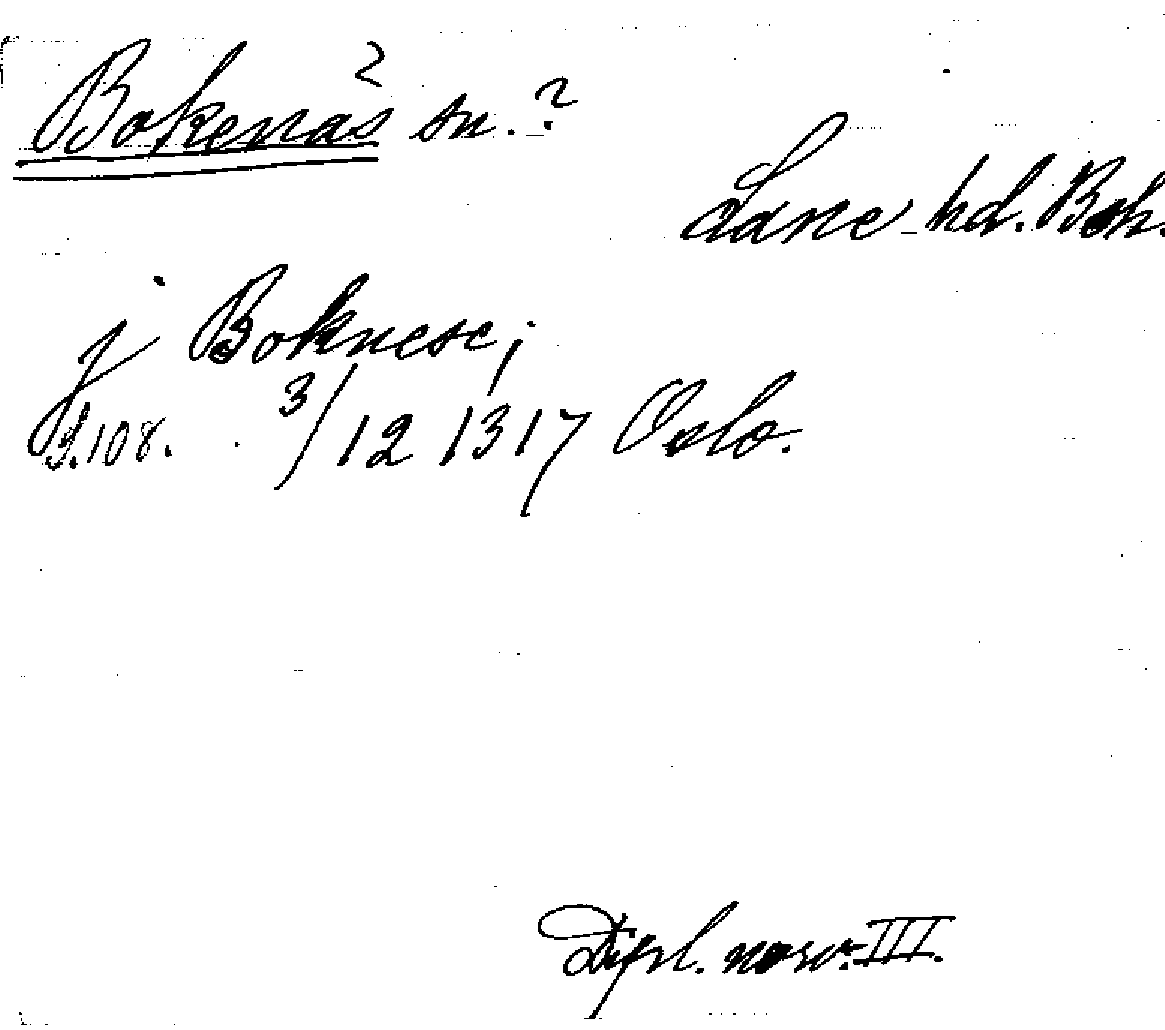 Bokenäs² sn.?
Lane hd. Boh.
j Boknese;
S.108. 3/12 1317 Oslo.
Dipl. norv. III.